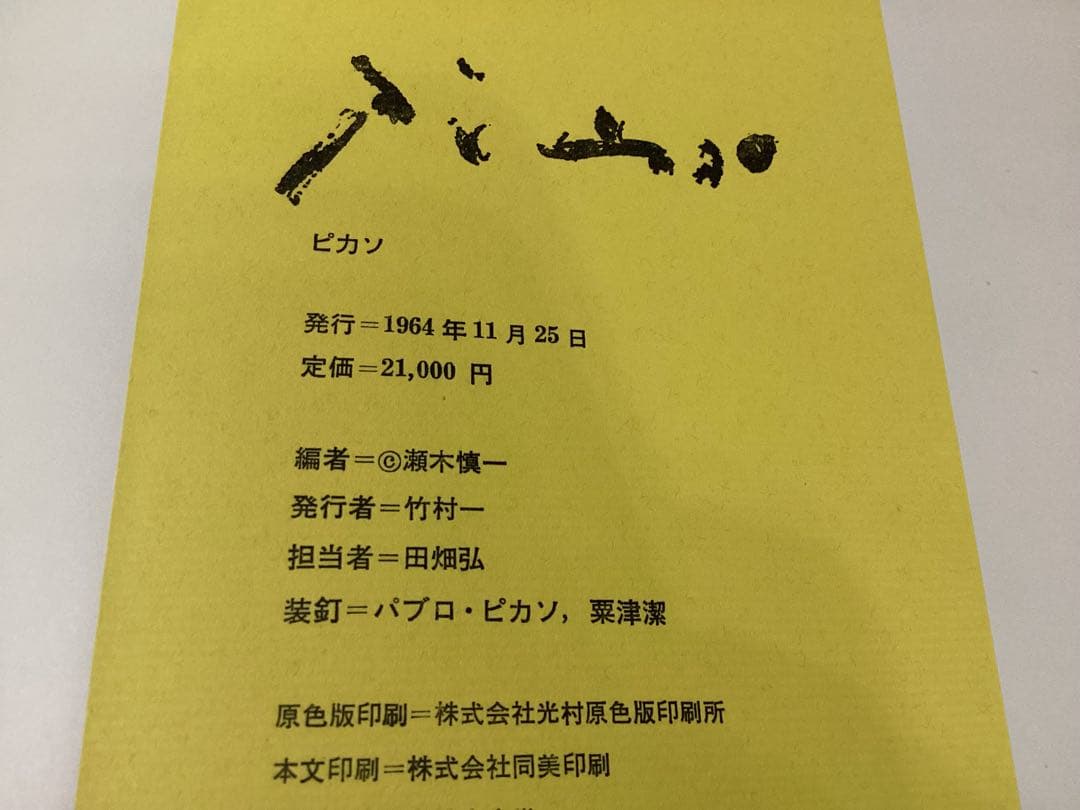 ピカソ
発行＝1964年11月25日
定価＝21,000 円
編者＝©瀬木慎一
発行者＝竹村一
担当者＝田畑弘
装釘＝パブロ・ピカソ，粟津潔
原色版印刷＝株式会社光村原色版印刷所
本文印刷＝株式会社同美印刷